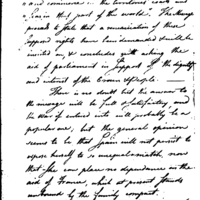 and commerce in the territories coast and
Seas in that part of the world. The Message
proceeds to State that a communication of these
Supposed rights have been demanded should be
invited on, & concludes with asking the
aid of parliament in Support of the dignity
and interest of the Crown & People. —
There is no doubt but his answer to
the message will be full & satisfactory, and
the War if entered into will probably be a
popular one, but the general opinion
seems to be that Spain will not permit to
expose herself to so unequal a match now
that she can place no dependance on the
aid of France, which at present stands
unbound by the family compact.